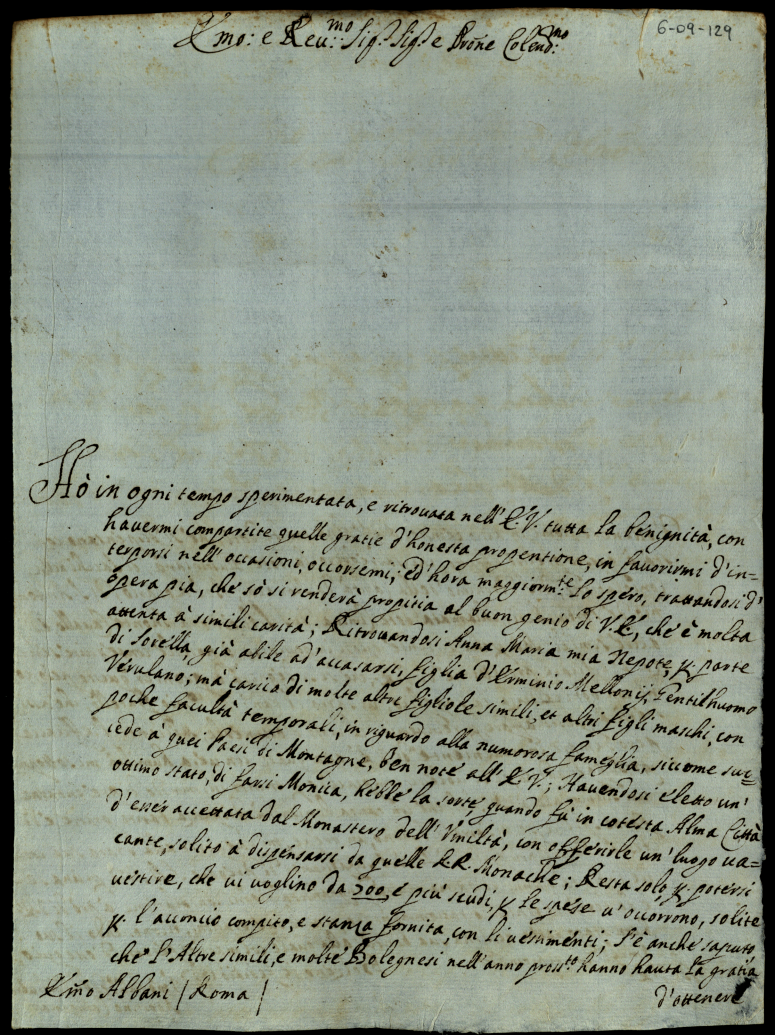 6-09-129
Emo: e Reu:mo Sig.r Sig.r e Prone Colend:mo
Hò in ogni tempo sperimentata, e ritrovata nell'E.V. tutta la benignità, con
havermi compartite quelle gratie d'honesta propentione, in favorirmi d'in=
terporsi nell'occasioni, occorsemi; ed'hora maggiorm.te lo spero, trattandosi d'
opera pia, che sò si renderà propitia al buon genio di V.E., che è molta
attenta à simili carità; Ritrovandosi Anna Maria mia Nepote, p. parte
di Sorella, già abile ad'accasarsi, figlia d'Erminio Mellonij, Gentilhuomo
Verulano; mà carico di molte altre figliole simili, et altri figli maschi, con
poche facultà temporali, in riguardo alla numerosa fameglia, siccome suc=
cede à quei Paesi di Montagne, ben note all'E.V.; Havendosi eletto un'
ottimo stato, di farsi Monica, hebbe la sorte quando fù in cotesta Alma Città
d'esser accettata dal Monastero dell'Umiltà, con offerirle un'luogo va=
cante, solito à dispensarsi da quelle RR. Monache; Resta solo, p. potersi
vestire, che vi voglino da 200, e più scudi, p. le spese v'occorrono, solite
p. l'acconcio compito, e stanza fornita, con li vestimenti; S'è anche saputo
che l'Altre simili, e molte Bolegnesi nell'anno pross.to hanno hauta la gratia
Emo Albani / Roma /
d'ottenere